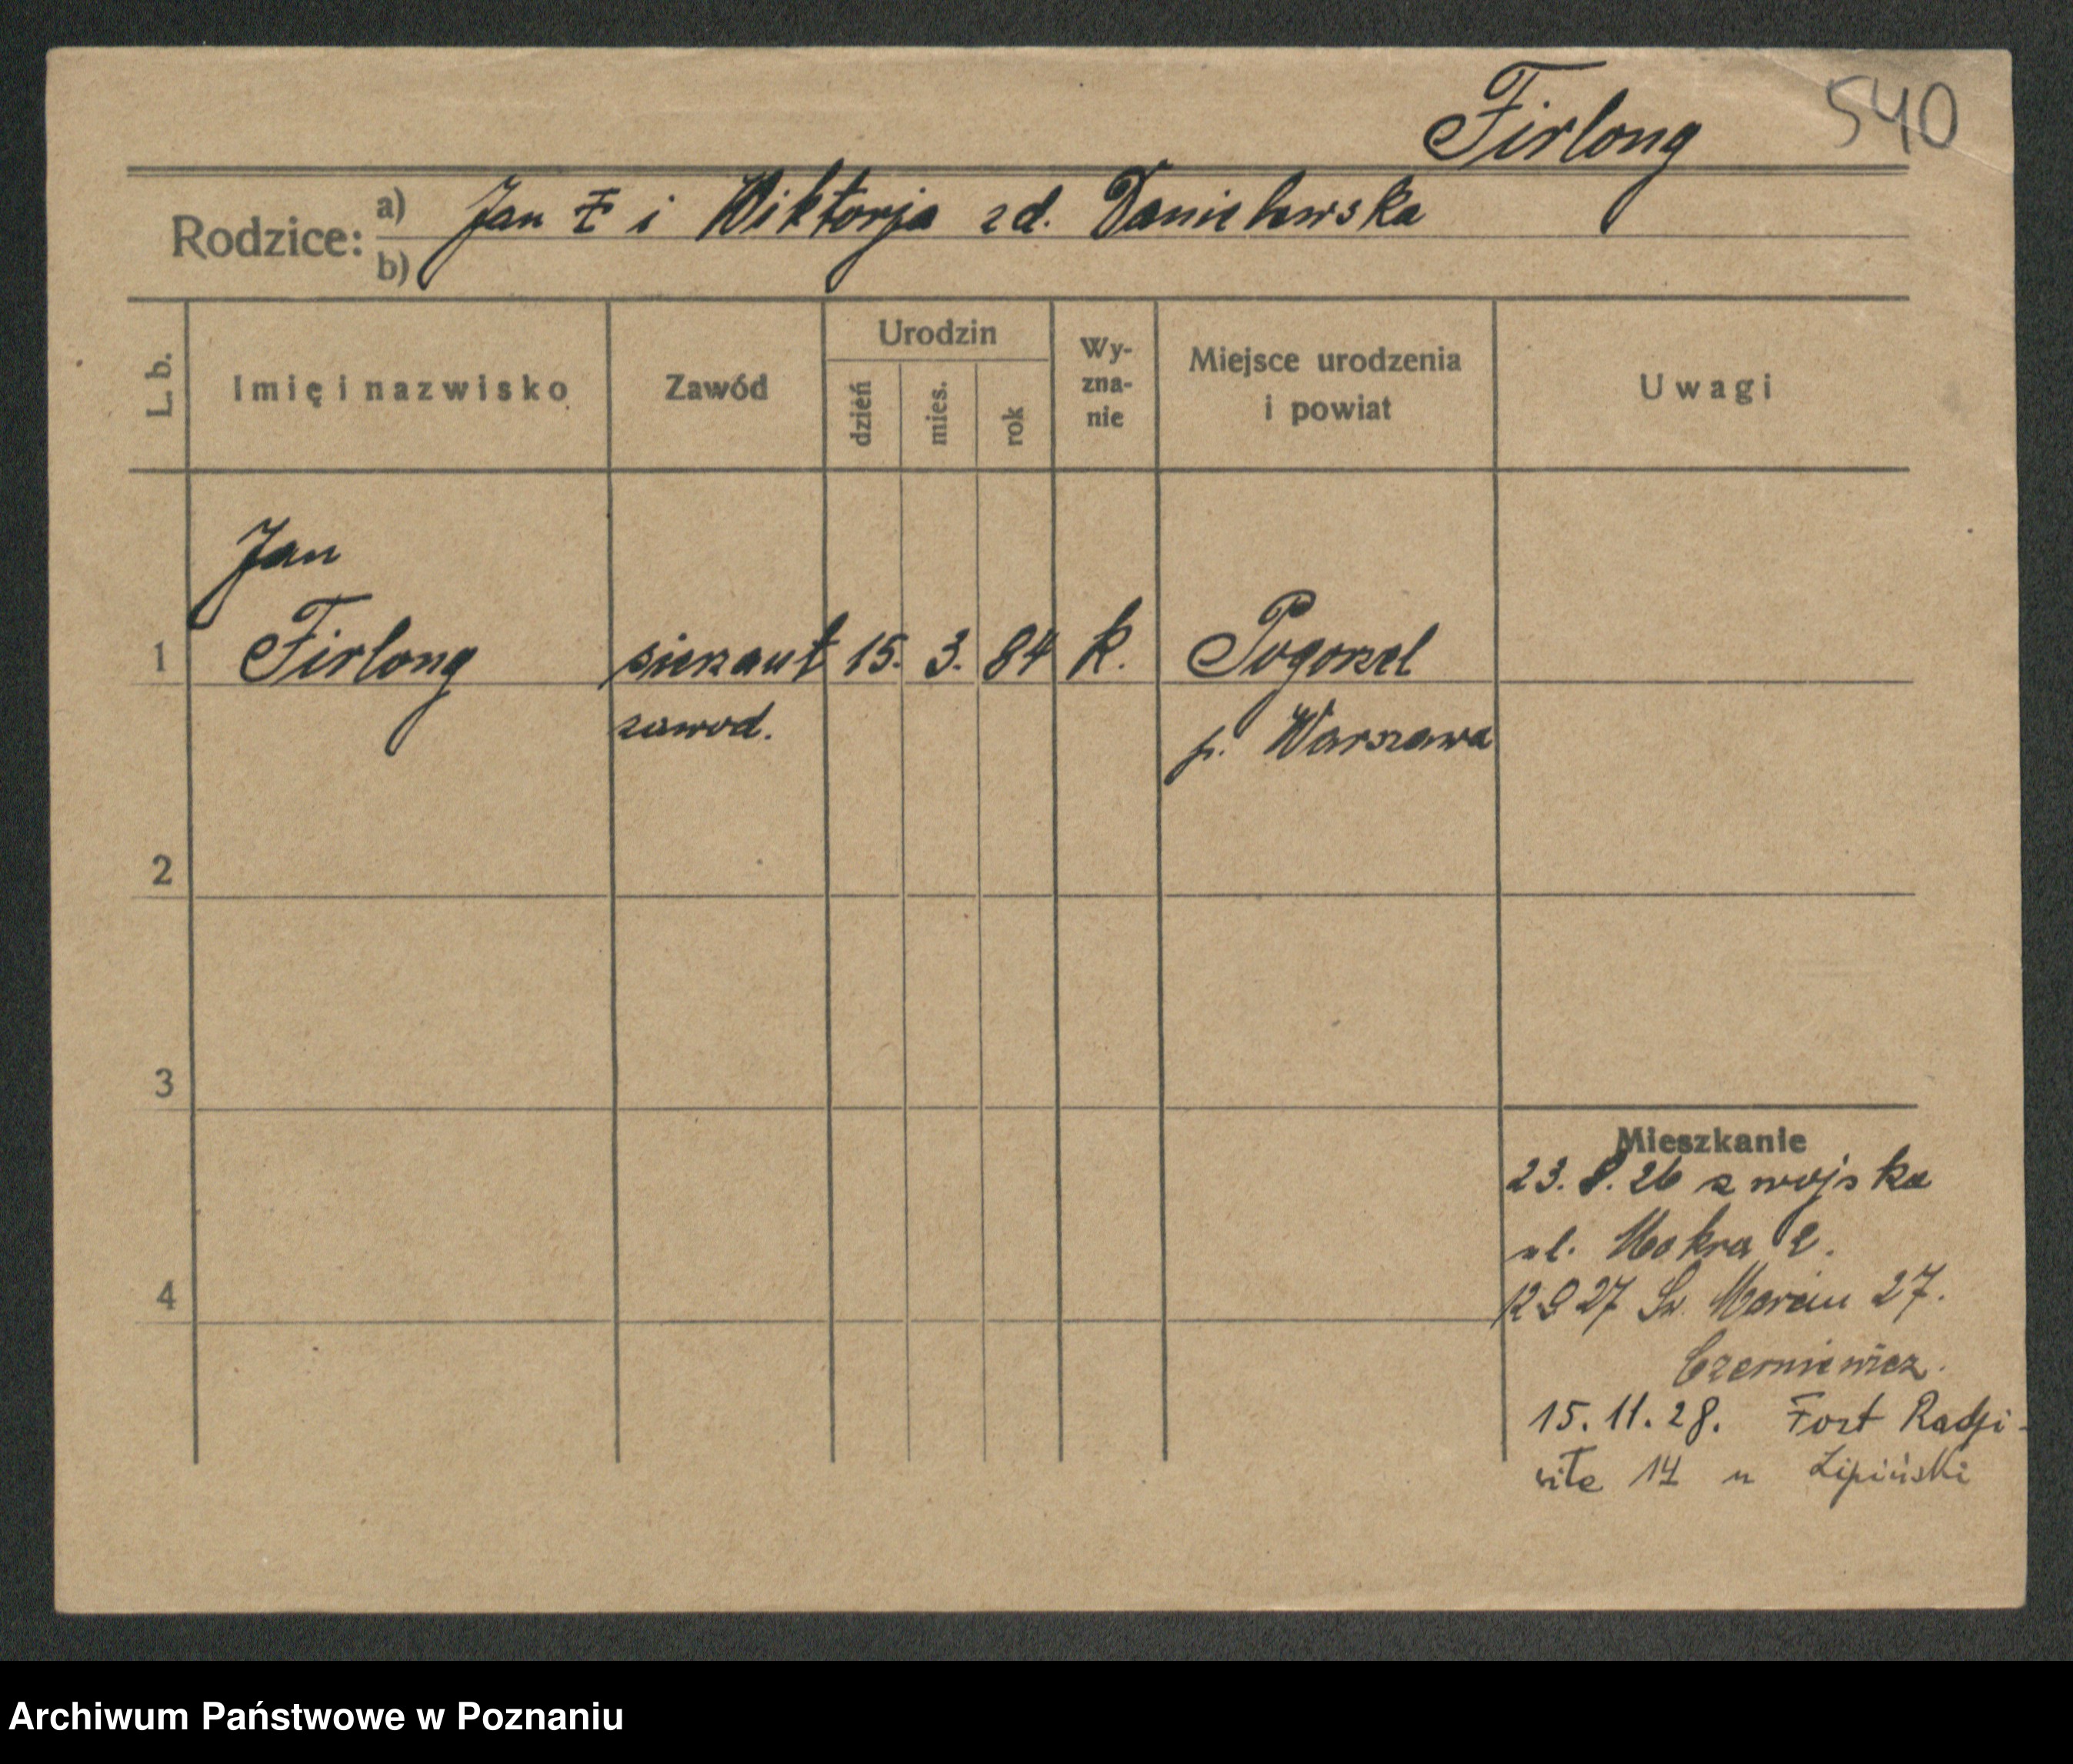 Firlong 540
Rodzice: a) Jan F i Wiktorja zd. Danielewska
b)
L. b. Imię i nazwisko Zawód Urodzin dzień mies. rok Wy-zna-nie Miejsce urodzenia i powiat Uwagi
Jan
1 Firlong sierżant 15. 3. 84 k. Pogorzel
zawod. p. Warszawa
2
3
Mieszkanie
23. 8. 26 z wojska
ul. Mokra 2.
4
12 9 27 Św. Marcin 27.
Czerniewicz.
15. 11. 28. Fort Radzi-
wiłe 14 u Lipiński
Archiwum Państwowe w Poznaniu